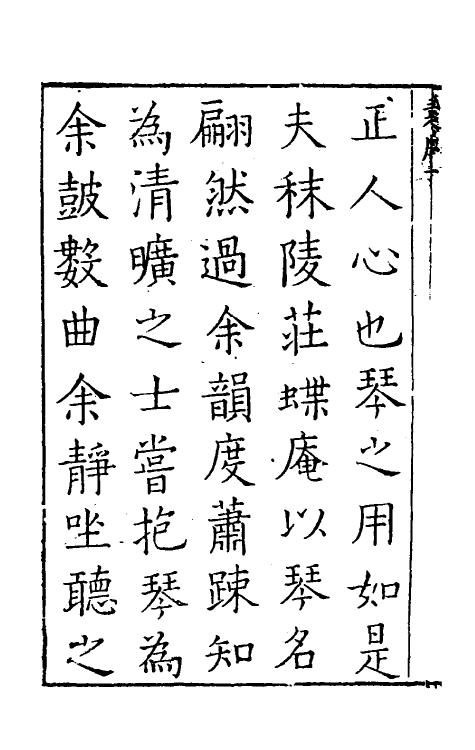 正人心也琴之用如是
夫秣陵莊蝶庵以琴名
翩然過余韻度蕭踈知
為清曠之士嘗抱琴為
余皷數曲余靜坐聽之